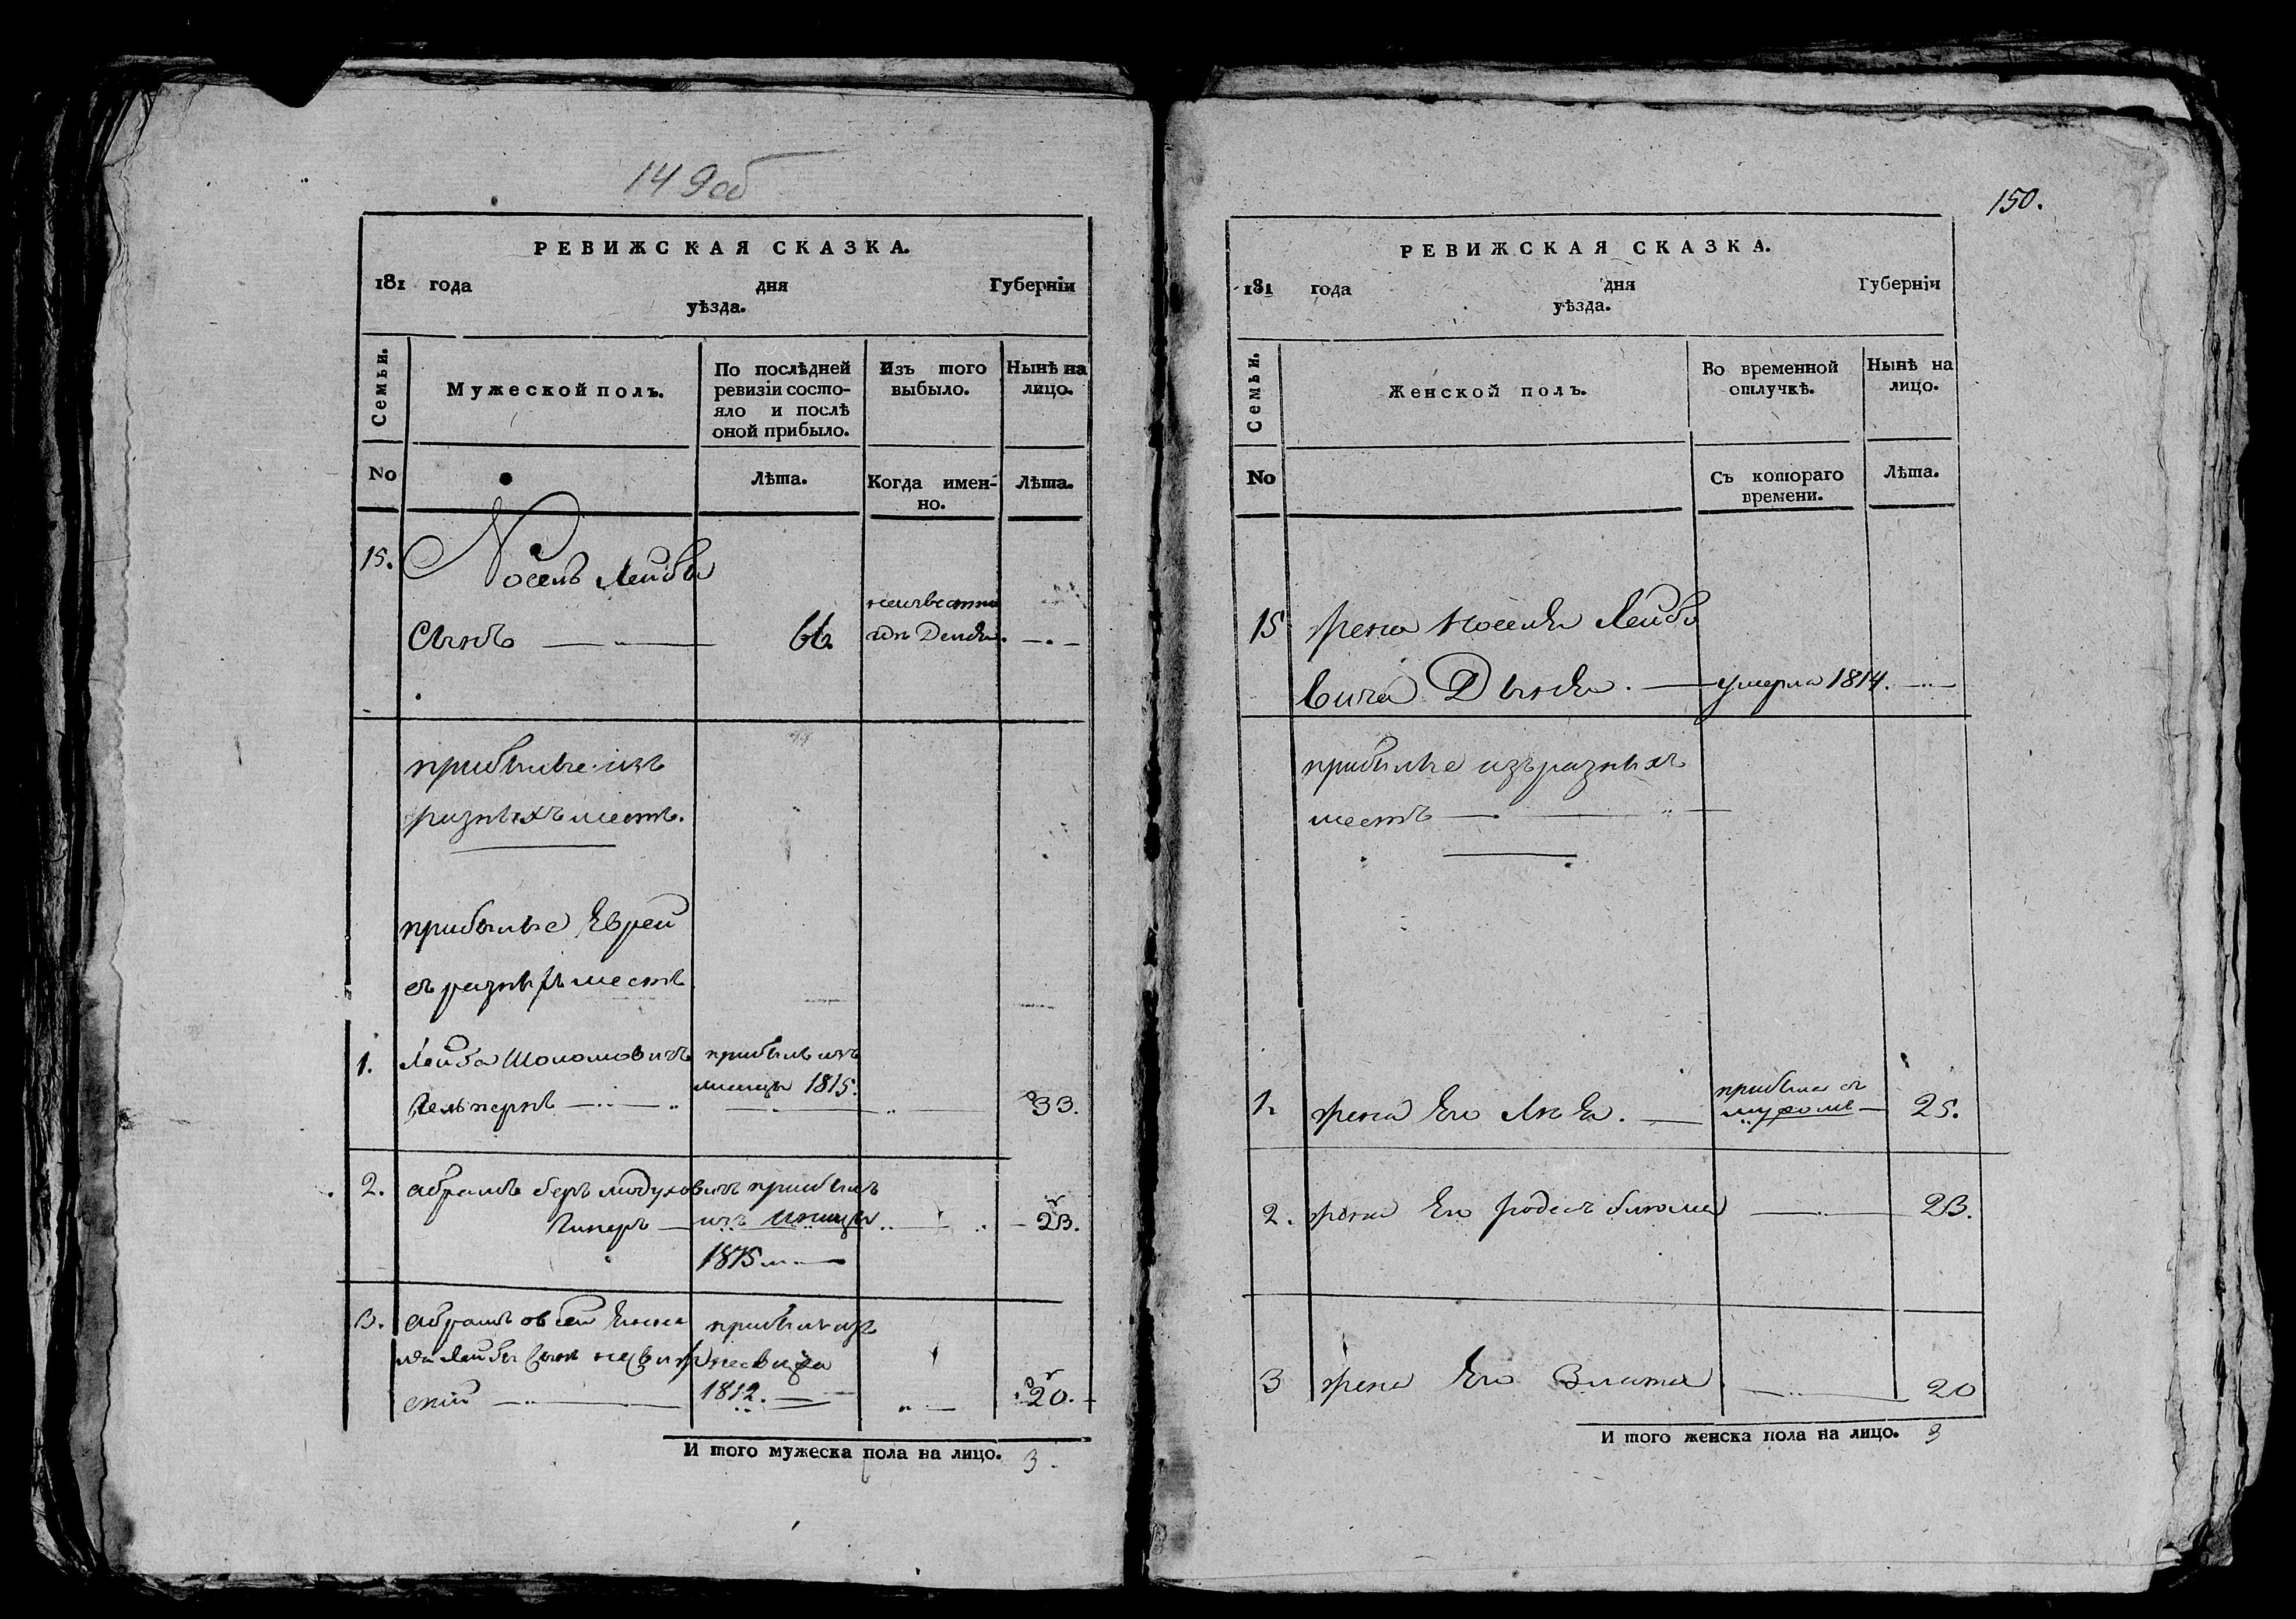 149об
РЕВИЖСКАЯ СКАЗКА.
181 года дня Губерніи
уѣзда.
Семьи.
Мужеской полъ.
По послѣдней ревизіи состо-
яло и послѣ
оной прибыло.
Изъ того
выбыло.
Нынѣ на
лицо.
No
Лѣта.
Когда имен-
но.
Лѣта.
15.
Носель Лейбы
Сынъ 66.
прибылые изъ
разныхъ местъ.
прибылые Евреи
съ разныхъ местъ
1. Лейба Шоломовичъ прибылъ изъ
1815.
Гельпернъ 33.
2. абрамъ беръ прибылъ
изъ 23.
1815
3. абрамъ прибылъ изъ
Лейбы сынъ
1812. 20.
И того мужеска пола на лицо. 3.
150.
РЕВИЖСКАЯ СКАЗКА.
181 года дня Губерніи
уѣзда.
Семьи.
Женской полъ.
Во временной
отлучкѣ.
Нынѣ на
лицо.
No
Съ котораго
времени.
Лѣта.
15 жена Носеля Лейбо
вича умерла 1814.
прибылые изъ разныхъ
местъ
прибыла съ
1. жена Его 25.
2. жена Его блюма 23.
3 жена Его Злата 20
И того женска пола на лицо. 3